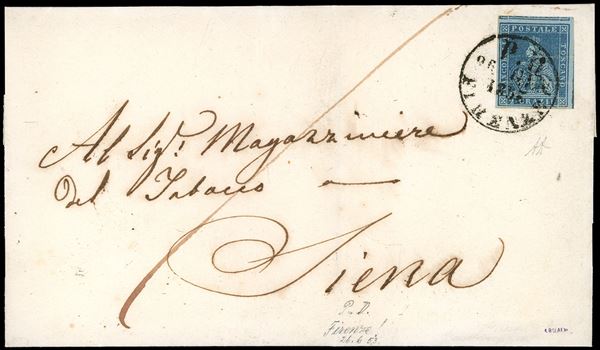 POSTALE
TOSCANO
P. D.
FIRENZE
Al Sig.r Magazziniere
del Tabacco
Siena
P.D.
Firenze!
26.6.53